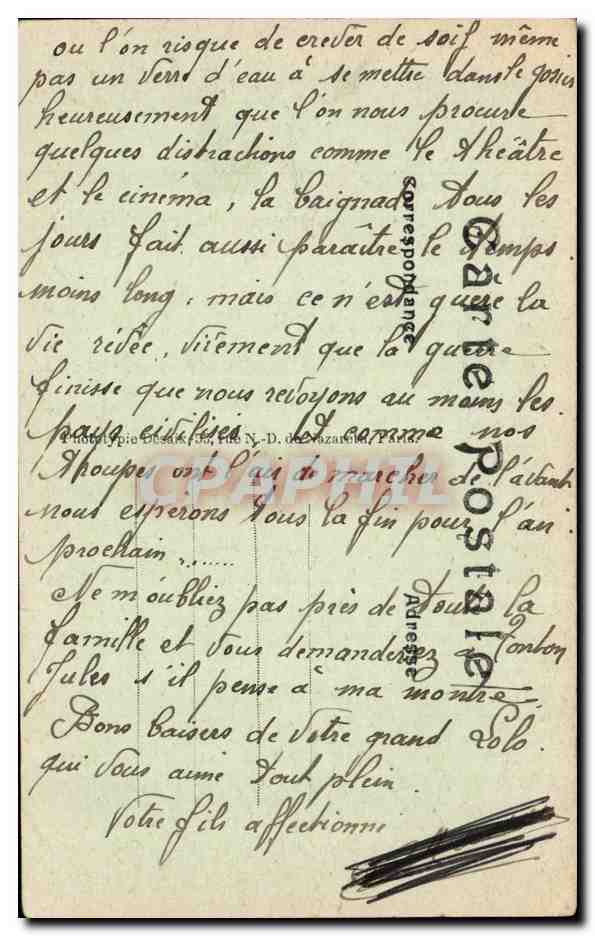 ou l'on risque de crever de soif même
pas un verre d'eau à se mettre dans le gosier
heureusement que l'on nous procure
quelques distractions comme le théâtre
et le cinéma, la baignade tous les
jours fait aussi paraître le temps
moins long, mais ce n'est guère la
vie rêvée, virement que la guerre
finisse que nous revoyons au moins les
pays civilisés. Et comme nos
troupes ont l'air de marcher de l'avant
nous esperons tous la fin pour l'an
prochain .......
Ne m'oubliez pas près de toute la
famille et vous demanderez à Tonton
Jules s'il pense à ma montre.
Bons baisers de votre grand Lolo.
qui vous aime tout plein.
Votre fils affectionné
Carte Postale
Correspondance
Adresse
Phototypie Desaix, 33, rue N.-D. de Nazareth, Paris.
CPAPHIL